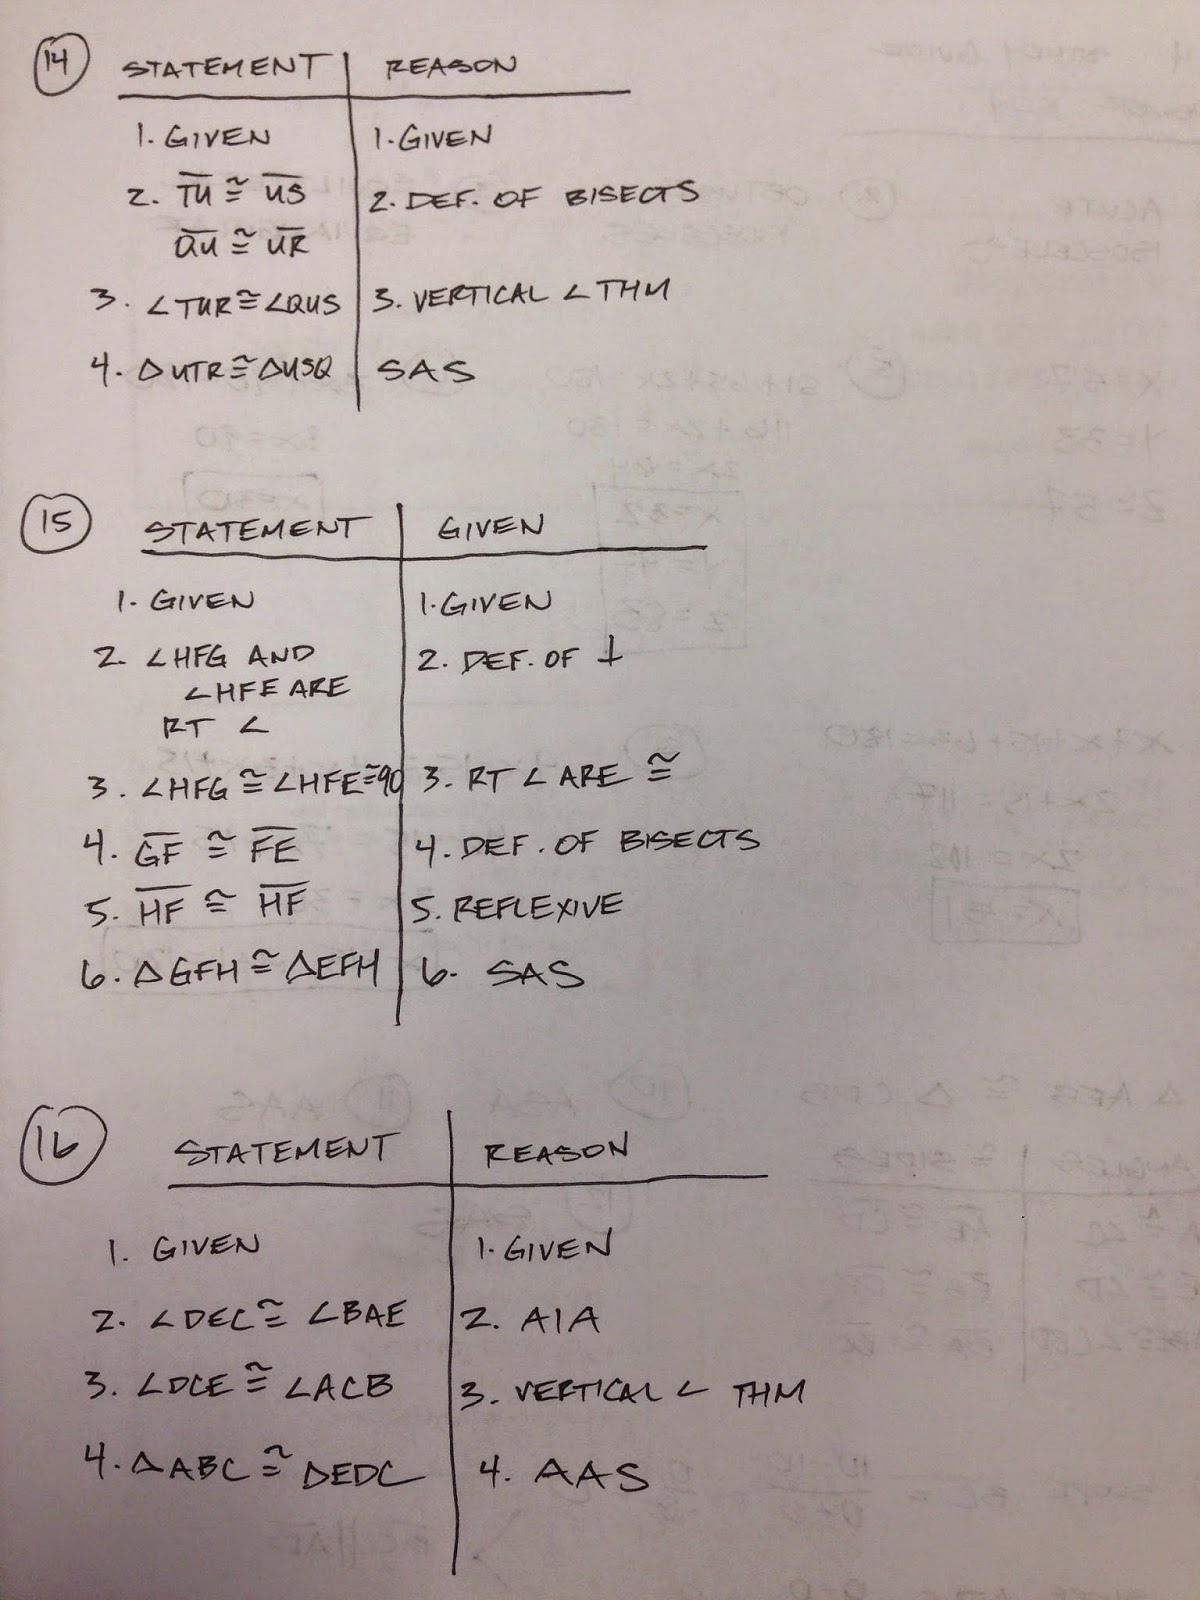 14 STATEMENT REASON
1. GIVEN 1. GIVEN
2. TU ≅ US 2. DEF. OF BISECTS
QU ≅ UR
3. ∠TUR ≅ ∠QUS 3. VERTICAL ∠ THM
4. △UTR ≅ △USQ SAS
15 STATEMENT GIVEN
1. GIVEN 1. GIVEN
2. ∠HFG AND 2. DEF. OF ⊥
∠HFE ARE
RT ∠
3. ∠HFG ≅ ∠HFE ≅ 90 3. RT ∠ ARE ≅
4. GF ≅ FE 4. DEF. OF BISECTS
5. HF ≅ HF 5. REFLEXIVE
6. △GFH ≅ △EFH 6. SAS
16 STATEMENT REASON
1. GIVEN 1. GIVEN
2. ∠DEC ≅ ∠BAE 2. AIA
3. ∠DCE ≅ ∠ACB 3. VERTICAL ∠ THM
4. △ABC ≅ △EDC 4. AAS